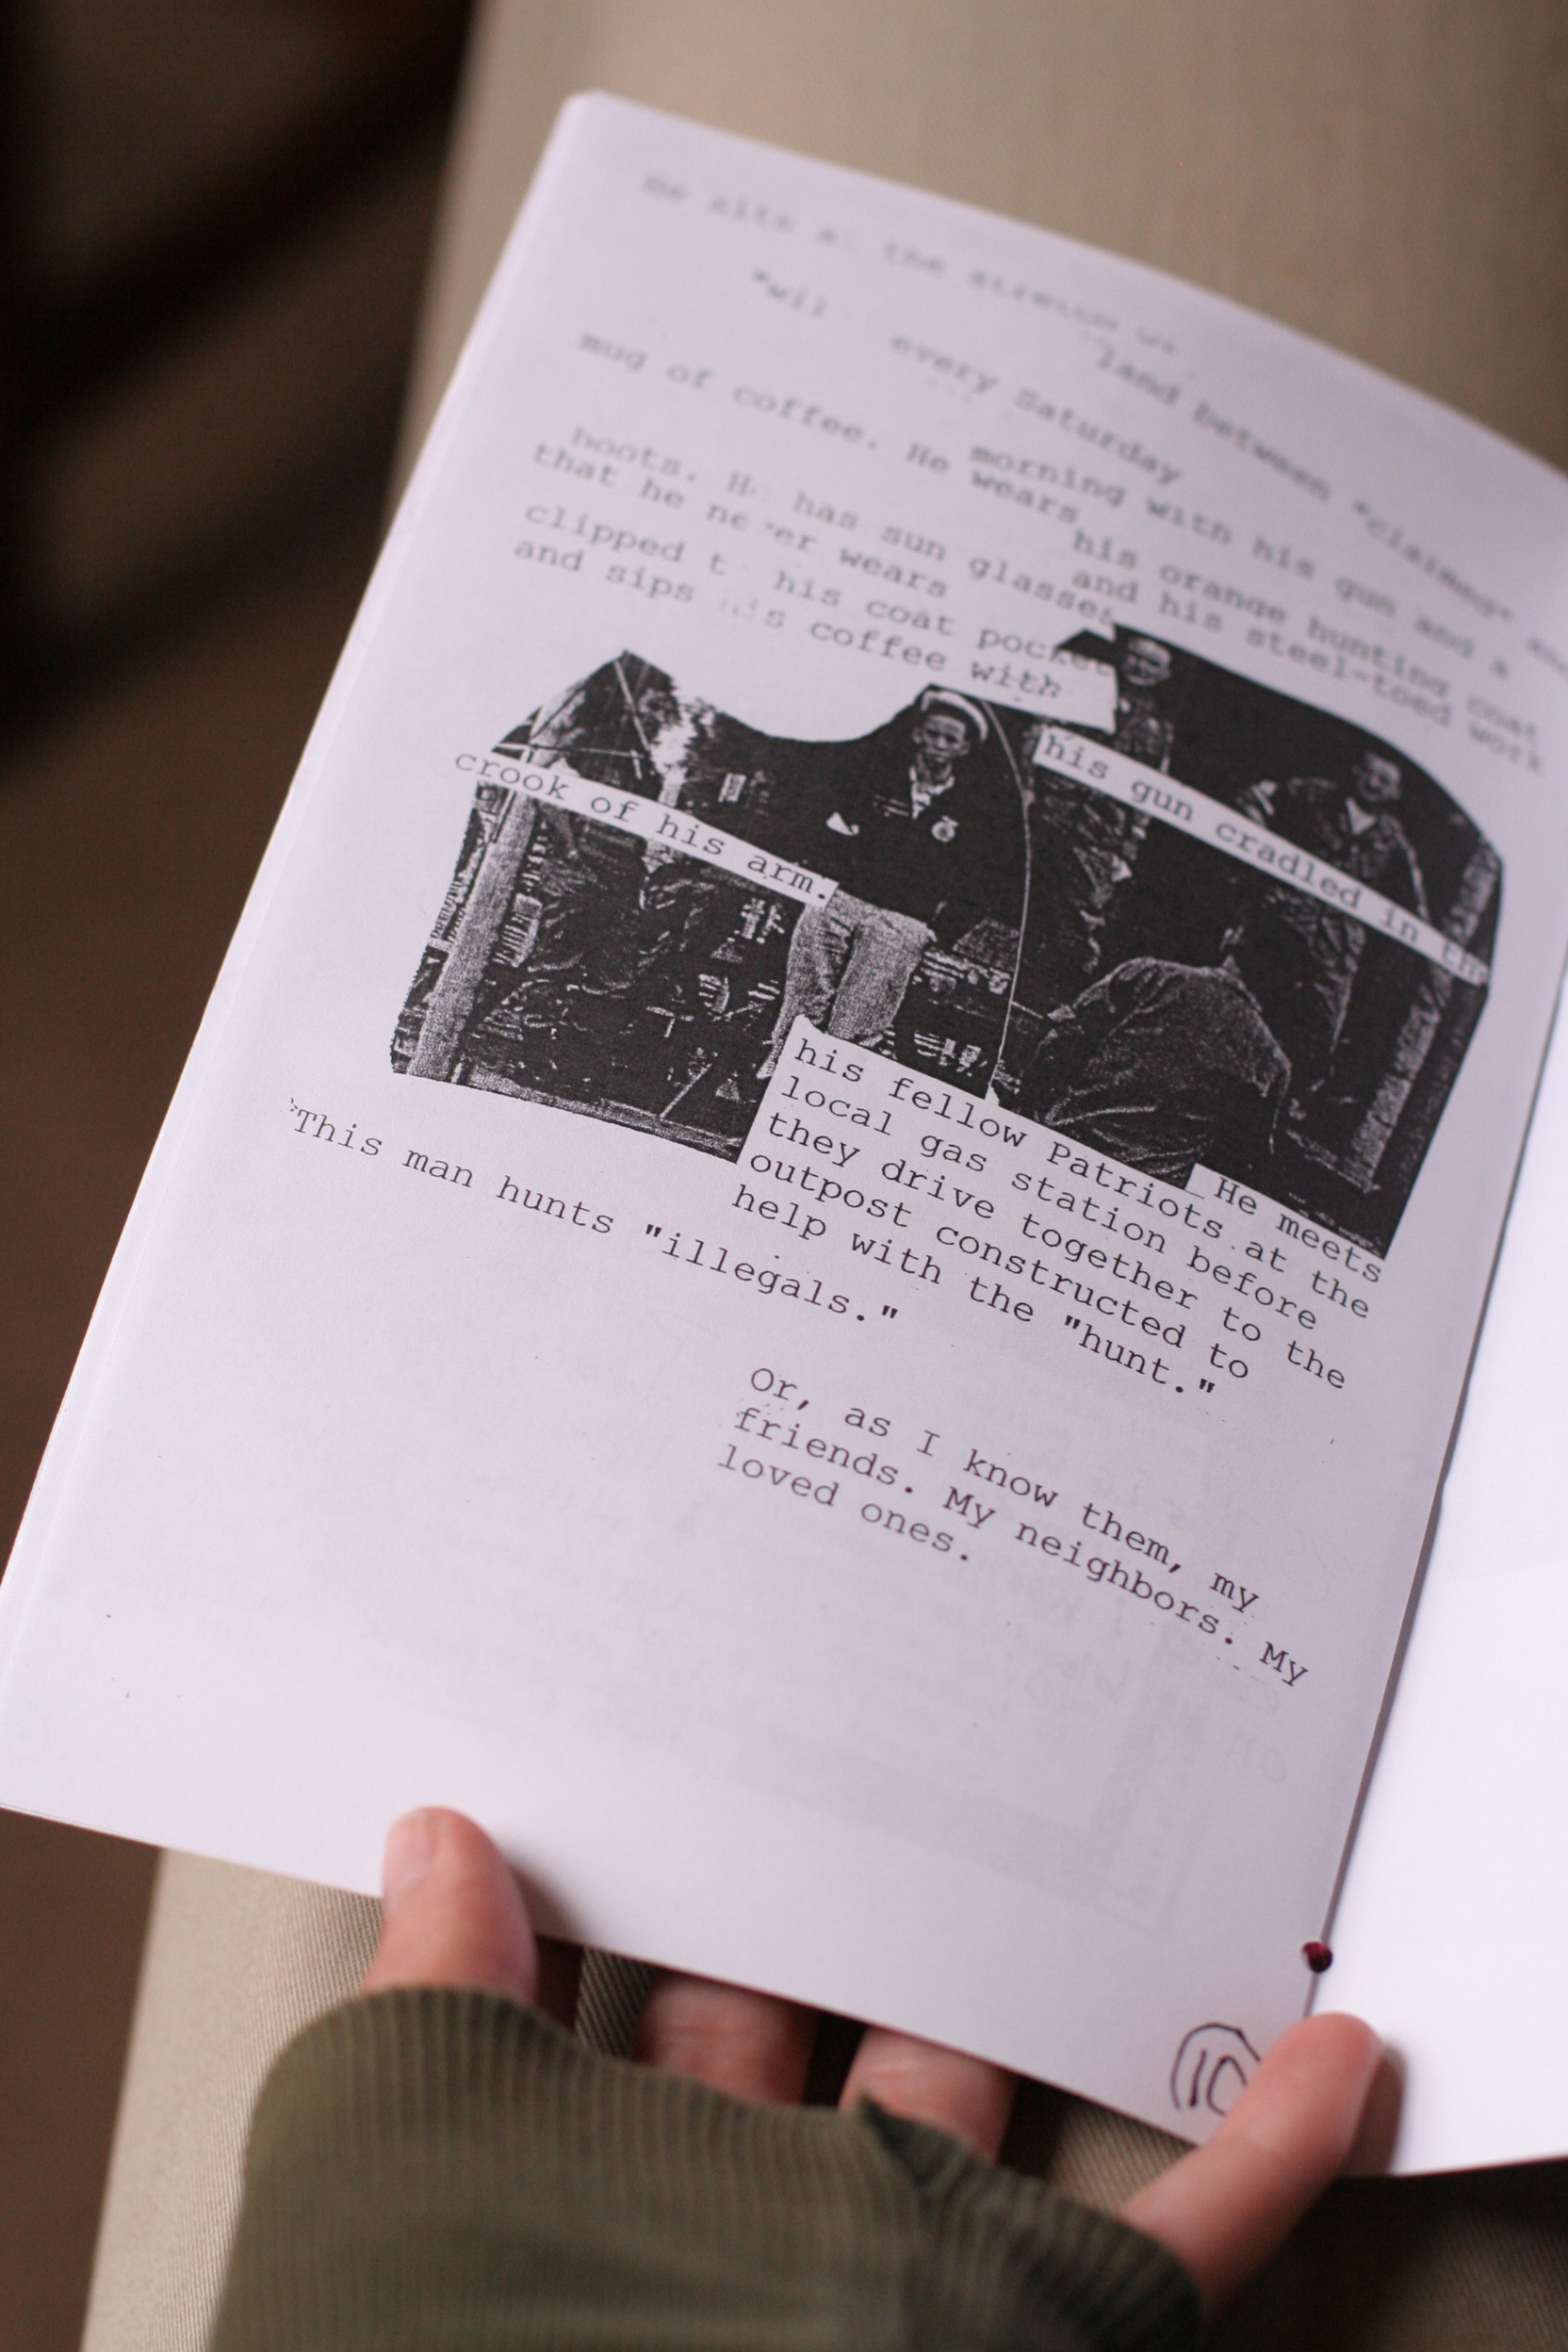 the
land between "claimed"
every Saturday
morning with his gun and a
mug of coffee. He wears
his orange hunting coat
and his steel-toed work
boots. He has sun glasses
that he never wears
clipped t his coat pocket
and sips his coffee with
his gun cradled in the
crook of his arm.
He meets
his fellow Patriots at the
local gas station before
they drive together to the
outpost constructed to
help with the "hunt."
*This man hunts "illegals."
Or, as I know them, my
friends. My neighbors. My
loved ones.
10